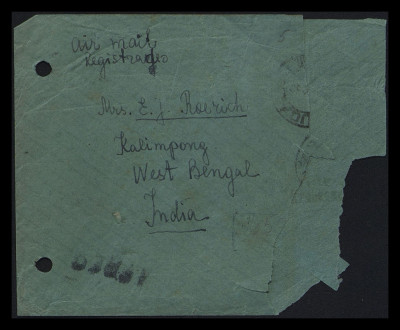 Air mail
Registrado
Mrs. E. J. Roerich
Kalimpong
West Bengal
India